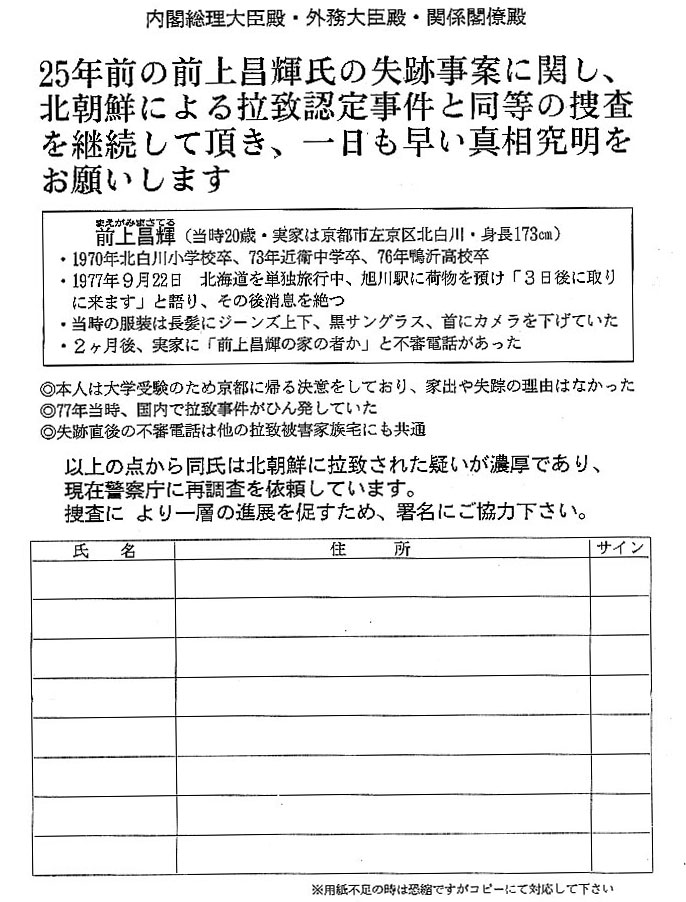 内閣総理大臣殿・外務大臣殿・関係閣僚殿
25年前の前上昌輝氏の失跡事案に関し、
北朝鮮による拉致認定事件と同等の捜査
を継続して頂き、一日も早い真相究明を
お願いします
まえがみまさてる
前上昌輝（当時20歳・実家は京都市左京区北白川・身長173㎝）
・1970年北白川小学校卒、73年近衛中学卒、76年鴨沂高校卒
・1977年９月22日　北海道を単独旅行中、旭川駅に荷物を預け「３日後に取り
に来ます」と語り、その後消息を絶つ
・当時の服装は長髪にジーンズ上下、黒サングラス、首にカメラを下げていた
・２ヶ月後、実家に「前上昌輝の家の者か」と不審電話があった
◎本人は大学受験のため京都に帰る決意をしており、家出や失踪の理由はなかった
◎77年当時、国内で拉致事件がひん発していた
◎失跡直後の不審電話は他の拉致被害家族宅にも共通
以上の点から同氏は北朝鮮に拉致された疑いが濃厚であり、
現在警察庁に再調査を依頼しています。
捜査に より一層の進展を促すため、署名にご協力下さい。
氏　名　住　所　サイン
※用紙不足の時は恐縮ですがコピーにて対応して下さい